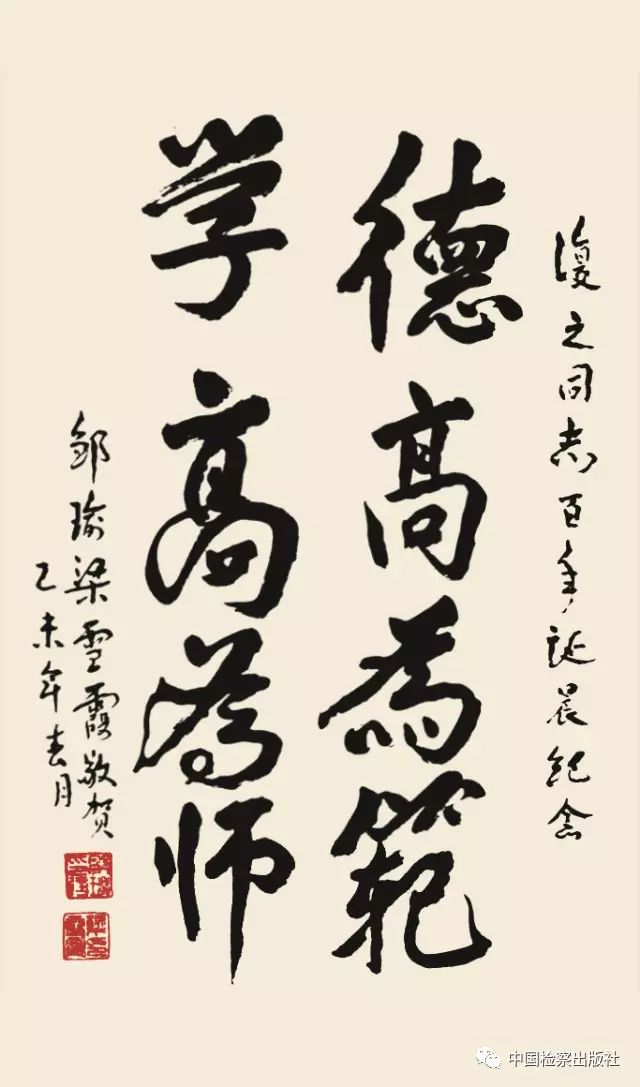 復之同志百年诞晨纪念
德高為範
学高為师
邹瑜梁雪霞敬贺
乙未年春月
中国检察出版社